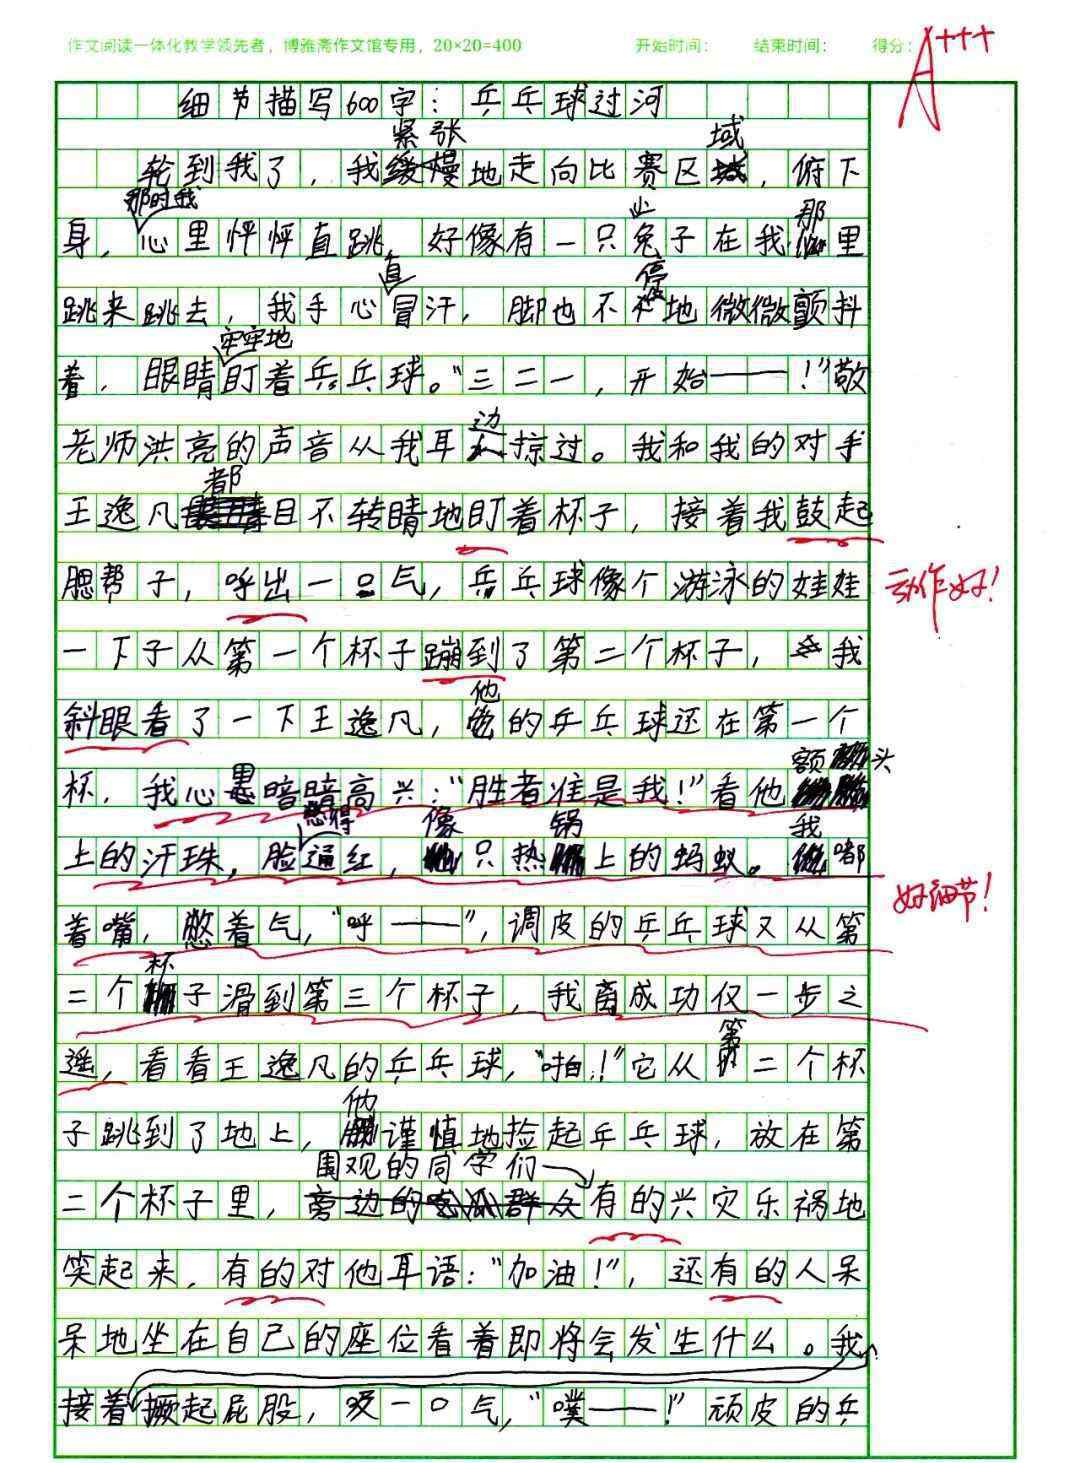 作文阅读一体化教学领先者，博雅斋作文馆专用，20×20=400 开始时间： 结束时间： 得分：A+++
细节描写600字：乒乓球过河
轮到我了，我紧张地走向比赛区域，俯下
身，那时我心里怦怦直跳，好像有一只小兔子在我那里
跳来跳去，我手心直冒汗，脚也不停地微微颤抖
着，眼睛牢牢地盯着乒乓球。“三二一，开始——！”敬
老师洪亮的声音从我耳边掠过。我和我的对手
王逸凡都目不转睛地盯着杯子，接着我鼓起
腮帮子，呼出一口气，乒乓球像个游泳的娃娃
一下子从第一个杯子蹦到了第二个杯子，我
斜眼看了一下王逸凡，他的乒乓球还在第一个
杯，我心里暗暗高兴：“胜者准是我！”看他额头
上的汗珠，脸憋得通红，像只热锅上的蚂蚁。我嘟
着嘴，憋着气，“呼——”，调皮的乒乓球又从第
二个杯子滑到第三个杯子，我离成功仅一步之
遥，看看王逸凡的乒乓球，“啪！”它从第二个杯
子跳到了地上，他谨慎地捡起乒乓球，放在第
二个杯子里，围观的同学们有的兴灾乐祸地
笑起来，有的对他耳语：“加油！”，还有的人呆
呆地坐在自己的座位看着即将会发生什么。我
接着撅起屁股，吸一口气，“噗——！”顽皮的乒
动作好！
好细节！